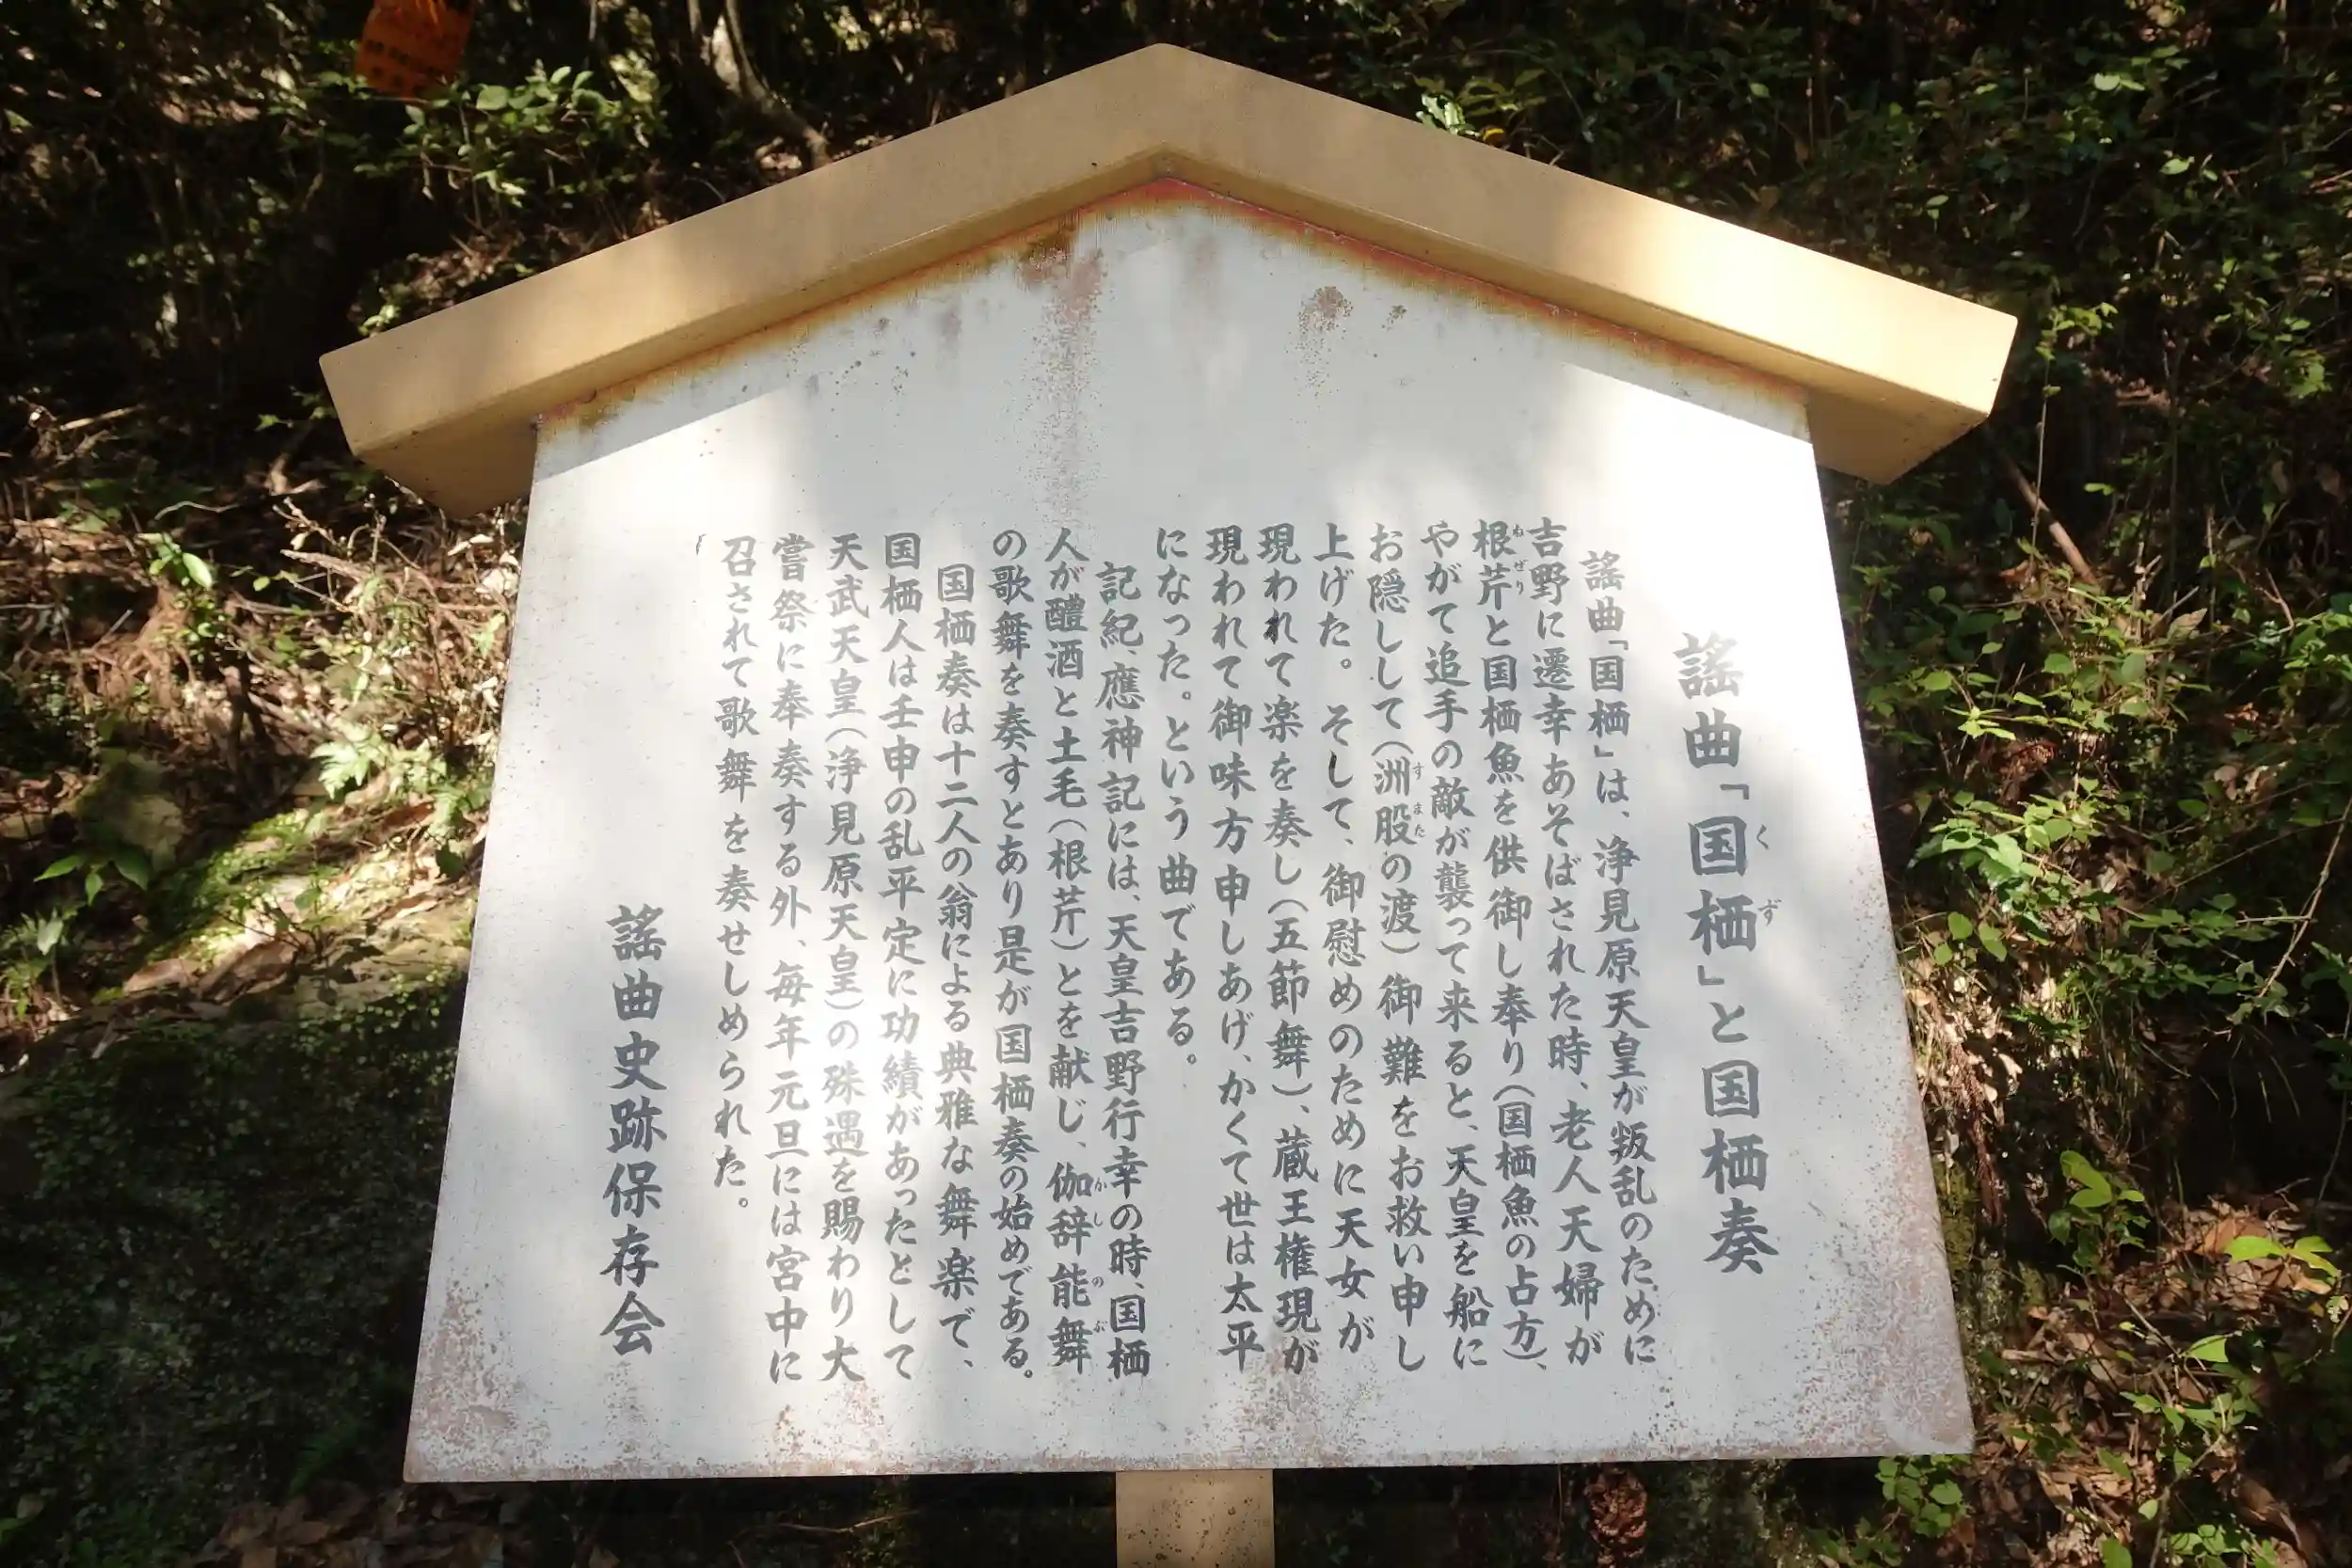 謡曲「国栖」と国栖奏
謡曲「国栖」は、浄見原天皇が叛乱のために
吉野に遷幸あそばされた時、老人夫婦が
根芹と国栖魚を供御し奉り(国栖魚の占方)、
やがて追手の敵が襲って来ると、天皇を船に
お隠しして(洲股の渡)御難をお救い申し
上げた。そして、御慰めのために天女が
現われて楽を奏し(五節舞)、蔵王権現が
現われて御味方申しあげ、かくて世は太平
になった。という曲である。
記紀、應神記には、天皇吉野行幸の時、国栖
人が醴酒と土毛(根芹)とを献じ、伽辞能舞
の歌舞を奏すとあり是が国栖奏の始めである。
国栖奏は十二人の翁による典雅な舞楽で、
国栖人は壬申の乱平定に功績があったとして
天武天皇(浄見原天皇)の殊遇を賜わり大
嘗祭に奉奏する外、毎年元旦には宮中に
召されて歌舞を奏せしめられた。
謡曲史跡保存会